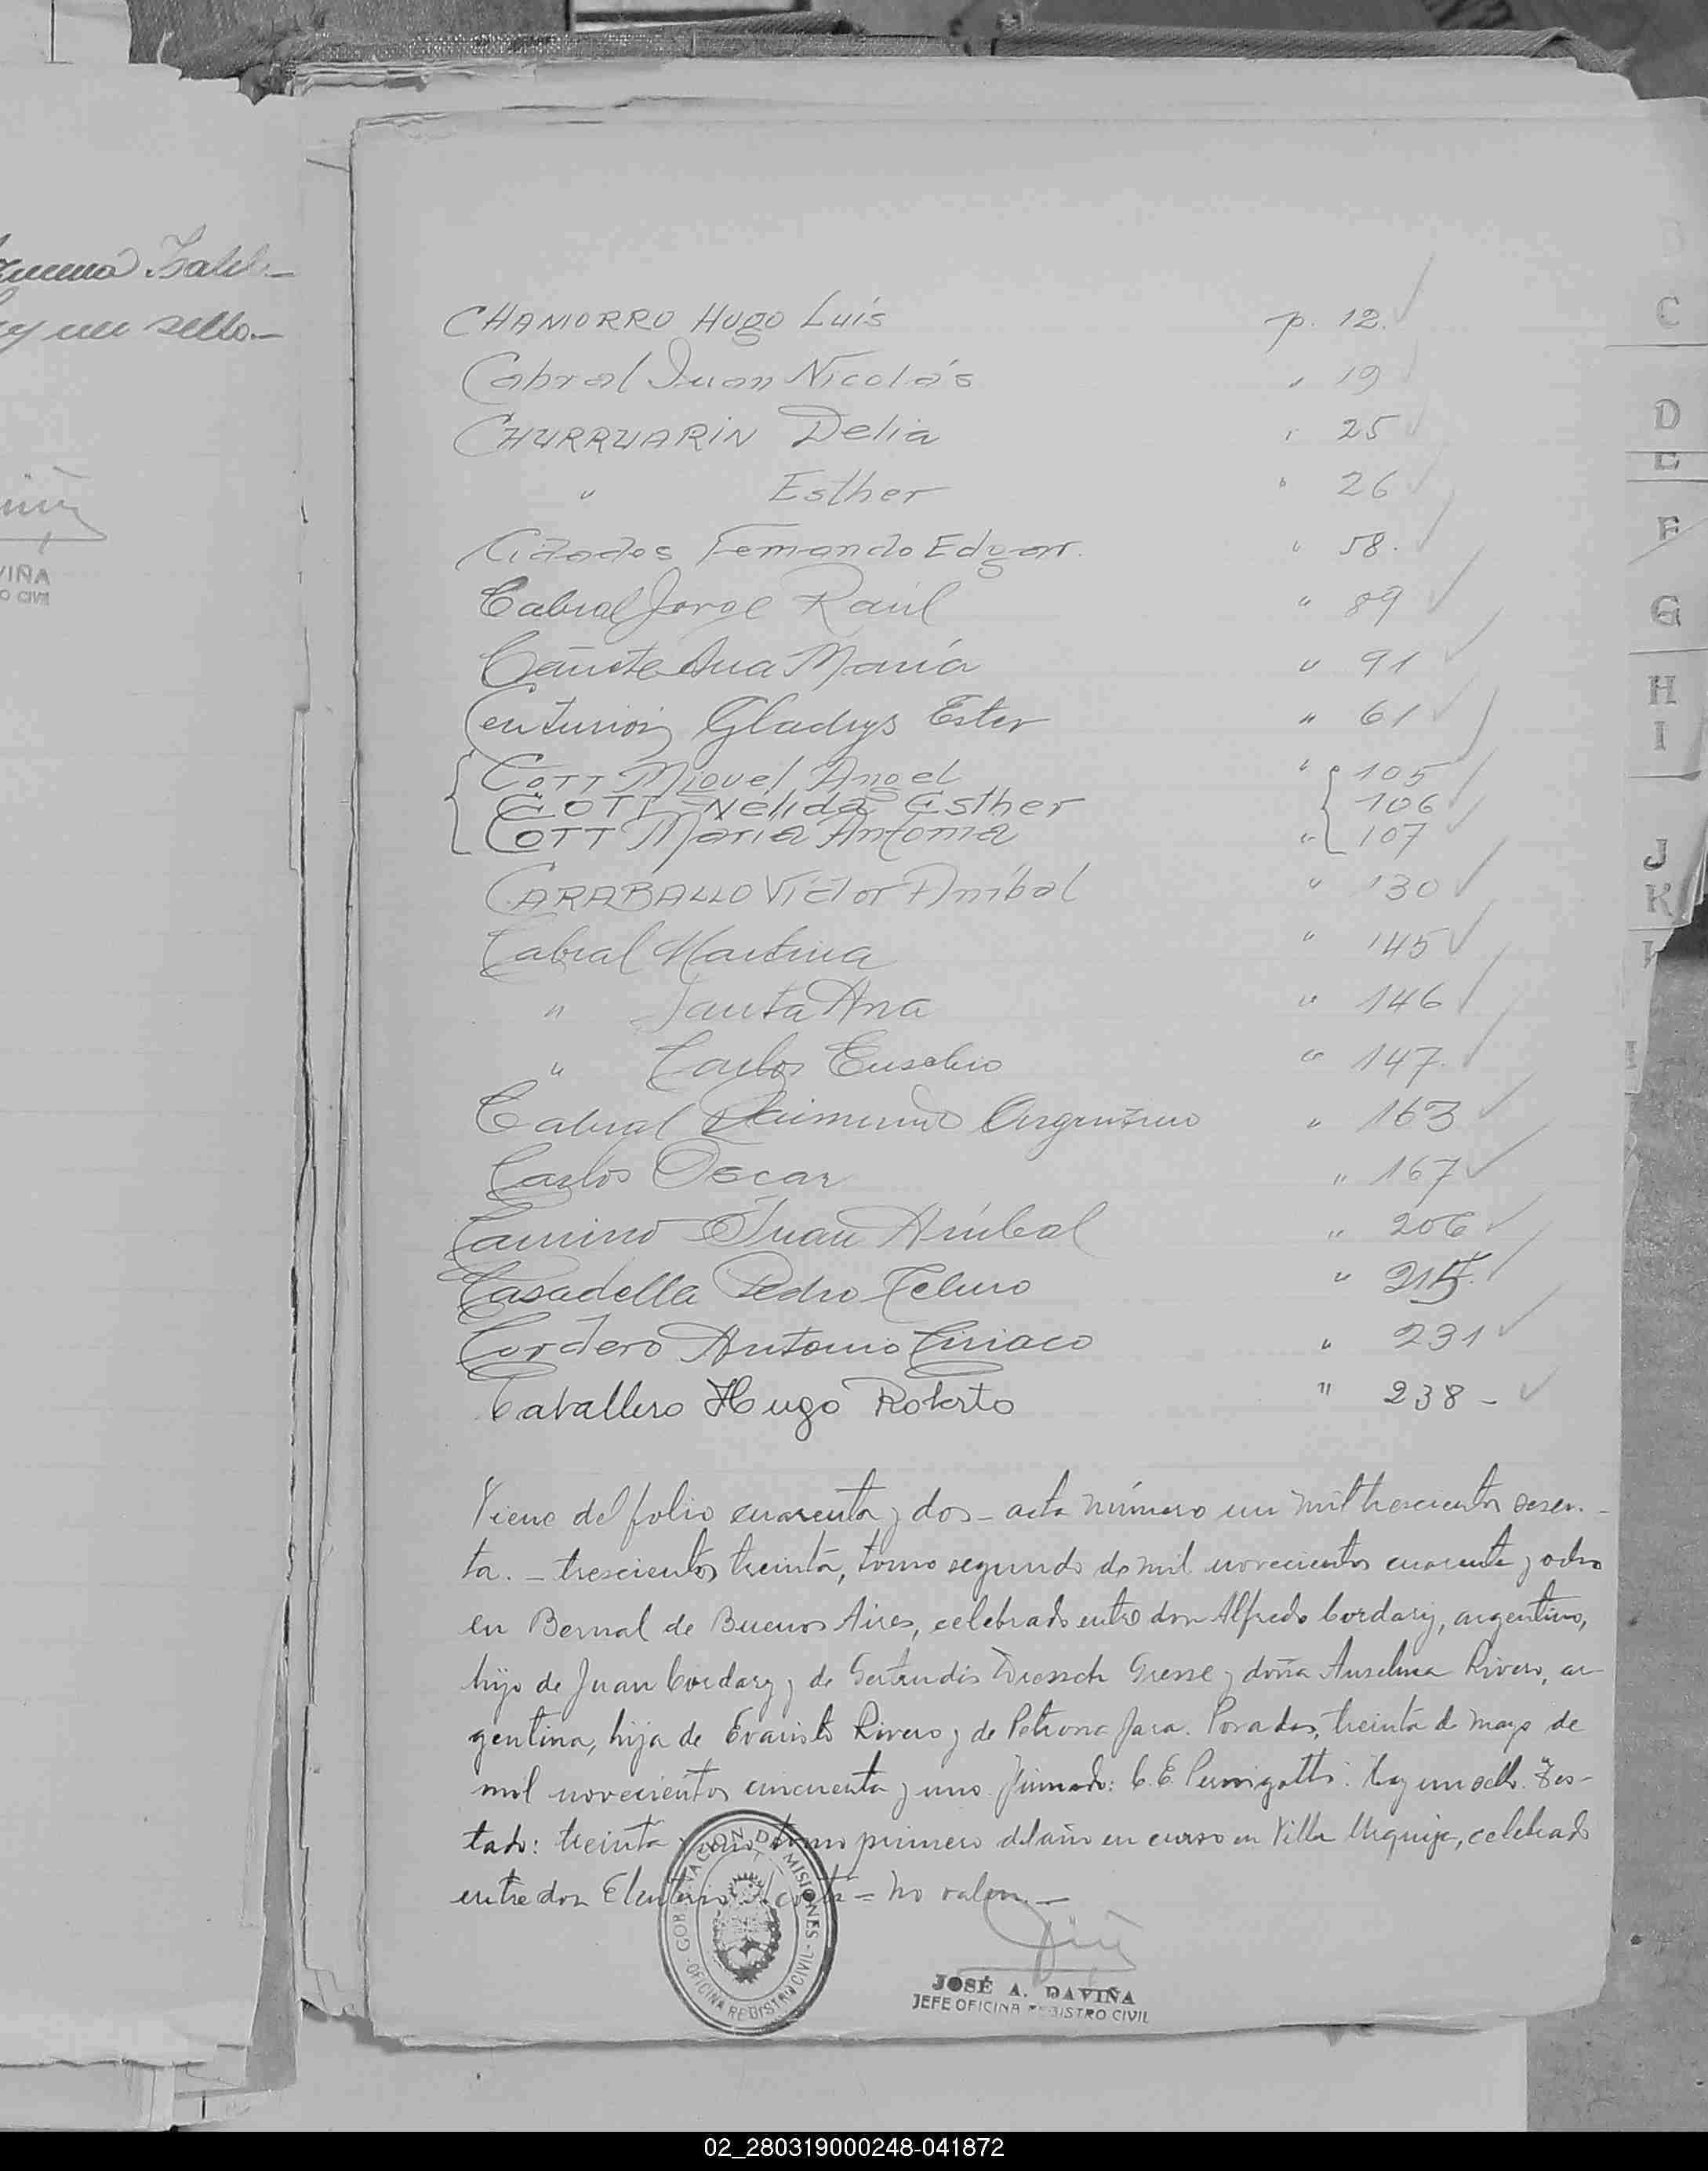 CHAMORRO Hugo Luís p. 12.
Cabral Juan Nicolás " 19
CHURRUARIN Delia " 25
" Esther " 26
Fernando Edgar. " 58.
Cabral Jorge Raúl " 89
Cañete Ana María " 91
Centurión Gladys Ester " 61
COTT Miguel Angel " 105
COTT Nélida Esther 106
COTT María Antonia " 107
CARABALLO Víctor Aníbal " 130
Cabral Martina " 145
" Santa Ana " 146
" Carlos Eusebio " 147.
Cabral Raimundo Argentino " 163
Carlos Oscar " 167
Camino Juan Aníbal " 206
Casadella Pedro " 215.
Cordero Antonio Ciriaco " 231
Caballero Hugo Roberto " 238 -
Viene del folio cuarenta y dos - acta número un mil trescientos sesen-
ta. - trescientos treinta, tomo segundo de mil novecientos cuarenta y ocho
en Bernal de Buenos Aires, celebrado entre don Alfredo Cordary, argentino,
hijo de Juan Cordary y de Gertrudis Gresse y doña Anselma Rivero, ar-
gentina, hija de Evaristo Rivero y de Petrona Jara. Posadas, treinta de mayo de
mil novecientos cincuenta y uno. Firmado: C. E. Hay un sello. Tes-
tado: treinta y uno tomo primero del año en curso en Villa Urquiza, celebrado
entre don Eleuterio = No valen. -
GOBERNACION DE MISIONES
- OFICINA REGISTRO CIVIL -
JOSÉ A. DAVIÑA
JEFE OFICINA REGISTRO CIVIL
y un sello.-
VIÑA
O CIVIL
C
D
E
F
G
H
I
J
K
02_280319000248-041872